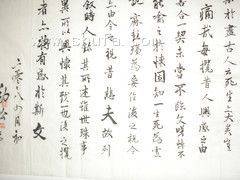 於盡古人云死生亦大矣豈
痛哉每攬昔人興感之由
合一契未嘗不臨文嗟悼不
喻之於懷固知一死生為虛
誕齊彭殤為妄作後之視今
由今之視昔悲夫故列
敘時人錄其所述雖世殊事
異所以興懷其致一也後之攬
者亦將有感於斯文
月初